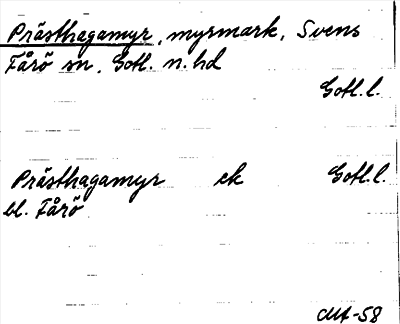 Prästhagamyr, myrmark, Svens
Fårö sn, Gotl. n. hd
Gotl. l.
Prästhagamyr ek Gotl. l.
bl. Fårö